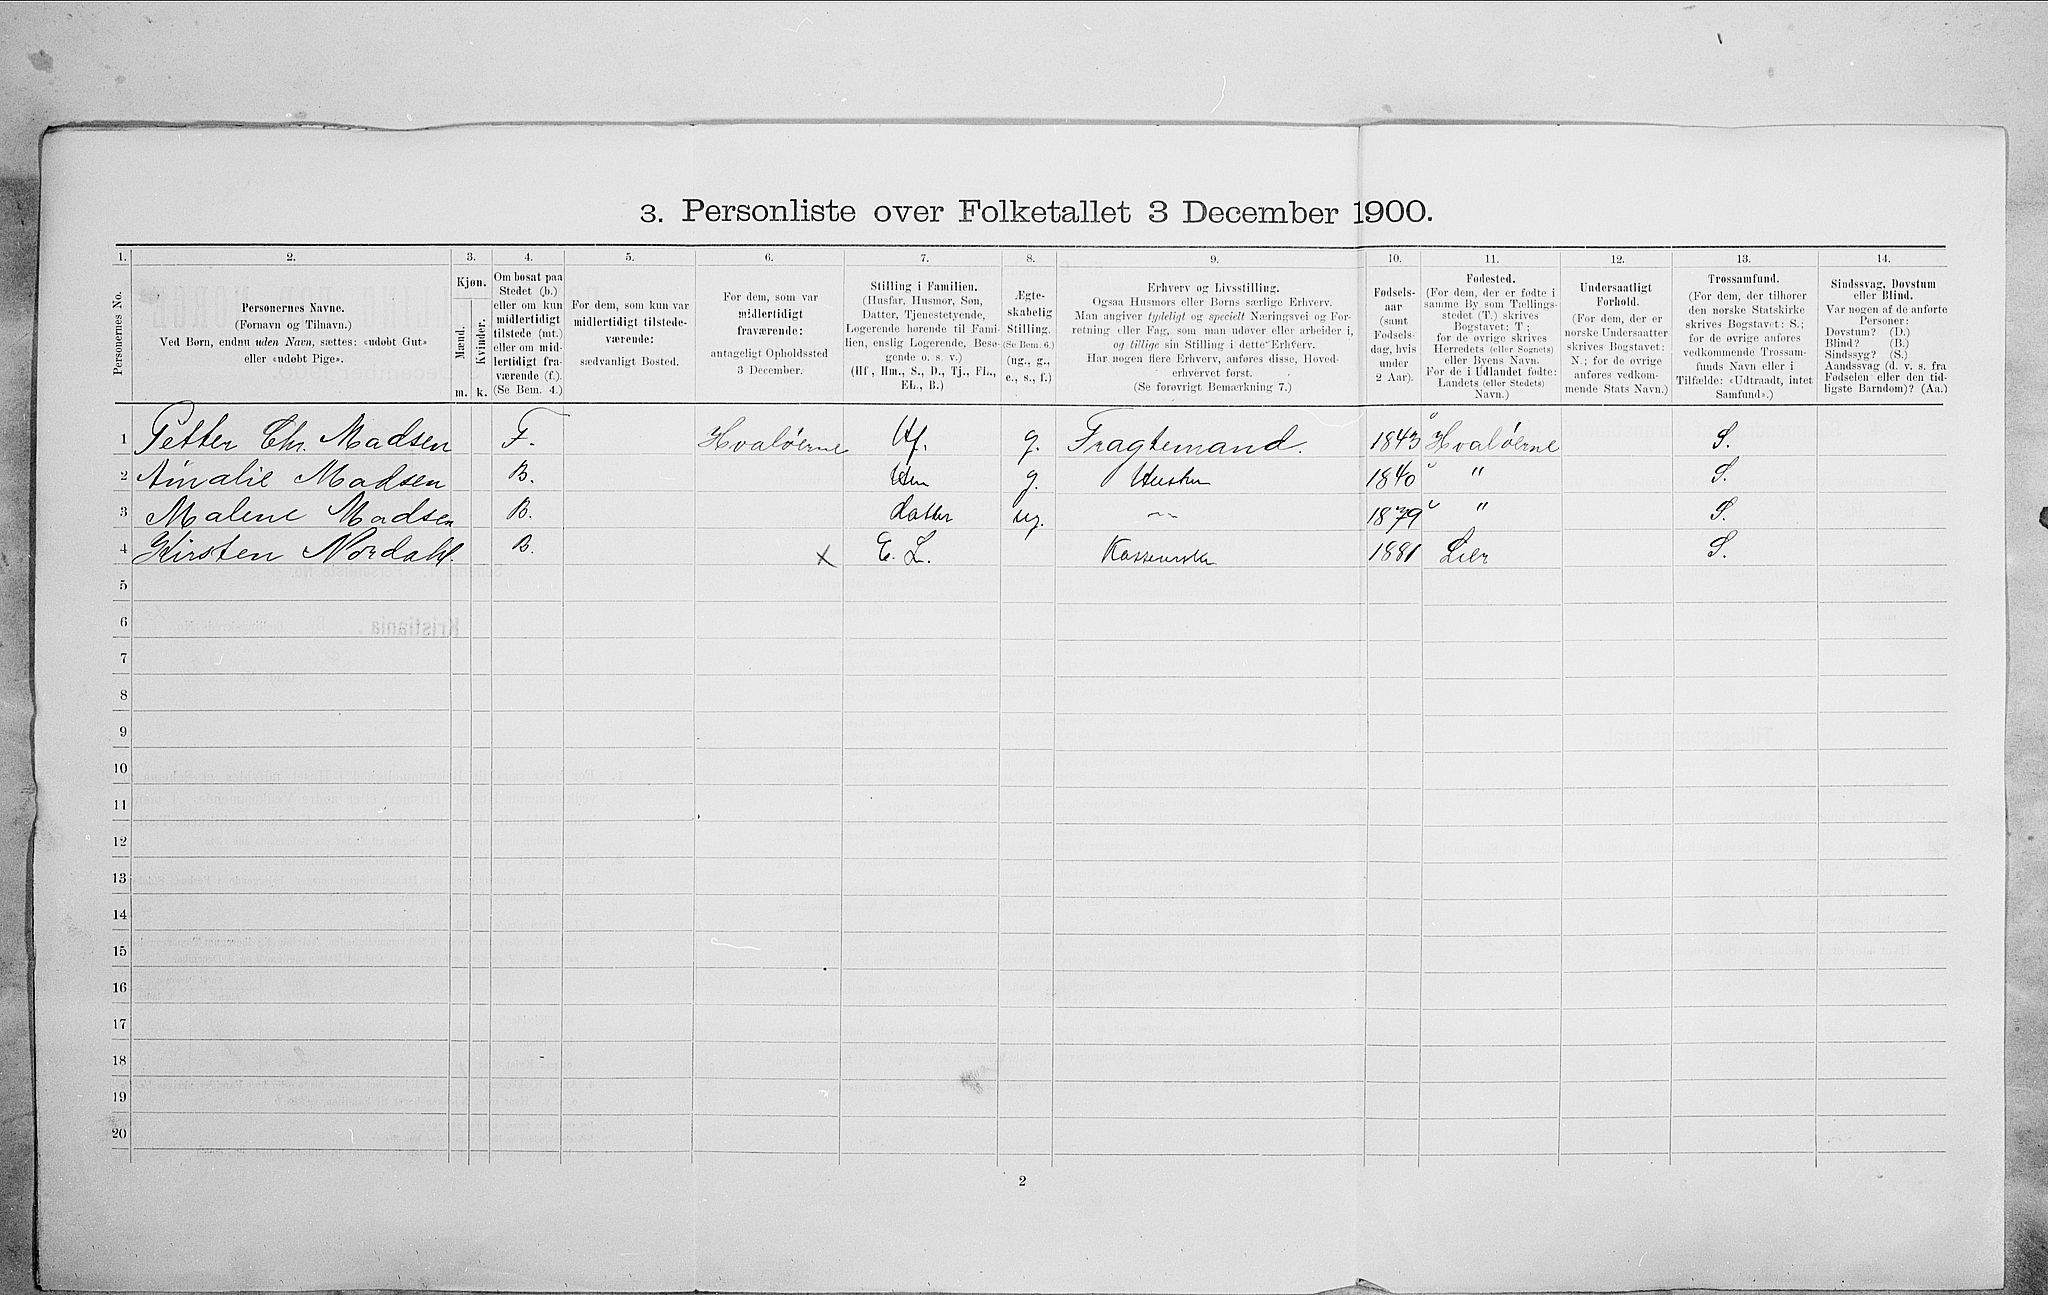 3. Personliste over Folketallet 3 December 1900.
1. 2. 3. 4. 5. 6. 7. 8. 9. 10. 11. 12. 13. 14.
Personernes No.
Personernes Navne.
(Fornavn og Tilnavn.)
Ved Børn, endnu uden Navn, sættes: «udøbt Gut»
eller «udøbt Pige».
Kjøn.
Mænd.
Kvinder.
m. k.
Om bosat paa
Stedet (b.)
eller om kun
midlertidigt
tilstede (mt.)
eller om mid-
lertidigt fra-
værende (f.).
(Se Bem. 4.)
For dem, som kun var
midlertidigt tilstede-
værende:
sædvanligt Bosted.
For dem, som var
midlertidigt
fraværende:
antageligt Opholdssted
3 December.
Stilling i Familien.
(Husfar, Husmor, Søn,
Datter, Tjenestetyende,
Logerende hørende til Fami-
lien, enslig Logerende, Besø-
gende o. s. v.)
(Hf, Hm., S., D., Tj., FL.,
EL., B.)
Ægte-
skabelig
Stilling.
(Se Bem. 6.)
(ug., g.,
e., s., f.)
Erhverv og Livsstilling.
Ogsaa Husmors eller Børns særlige Erhverv.
Man angiver tydeligt og specielt Næringsvei og For-
retning eller Fag, som man udøver eller arbeider i,
og tillige sin Stilling i dette Erhverv.
Har nogen flere Erhverv, anføres disse, Hoved-
erhvervet først.
(Se forøvrigt Bemærkning 7.)
Fødsels-
aar
(samt
Fødsels-
dag, hvis
under
2 Aar).
Fødested.
(For dem, der er fødte i
samme By som Tællings-
stedet (T.) skrives
Bogstavet: T;
for de øvrige skrives
Herredets (eller Sognets)
eller Byens Navn.
For de i Udlandet fødte:
Landets (eller Stedets)
Navn.)
Undersaatligt
Forhold.
(For dem, der er
norske Undersaatter
skrives Bogstavet:
N.; for de øvrige
anføres vedkom-
mende Stats Navn.)
Trossamfund.
(For dem, der tilhører
den norske Statskirke
skrives Bogstavet: S.;
for de øvrige anføres
vedkommende Trossam-
funds Navn eller i
Tilfælde: «Udtraadt, intet
Samfund».)
Sindssvag, Døvstum
eller Blind.
Var nogen af de anførte
Personer:
Døvstum? (D.)
Blind? (B.)
Sindssyg? (S.)
Aandssvag (d. v. s. fra
Fødselen eller den tid-
ligste Barndom)? (Aa.)
1 Petter Chr. Madsen F. Hvaløerne Hf. g. Fragtemand. 1843 Hvaløerne S.
2 Amalie Madsen B. Hm g. 1840 " S.
3 Malene Madsen B. datter ug. 1879 " S.
4 Kirsten Nordahl. B. x E. L. 1881 Lier S.
5
6
7
8
9
10
11
12
13
14
15
16
17
18
19
20
2